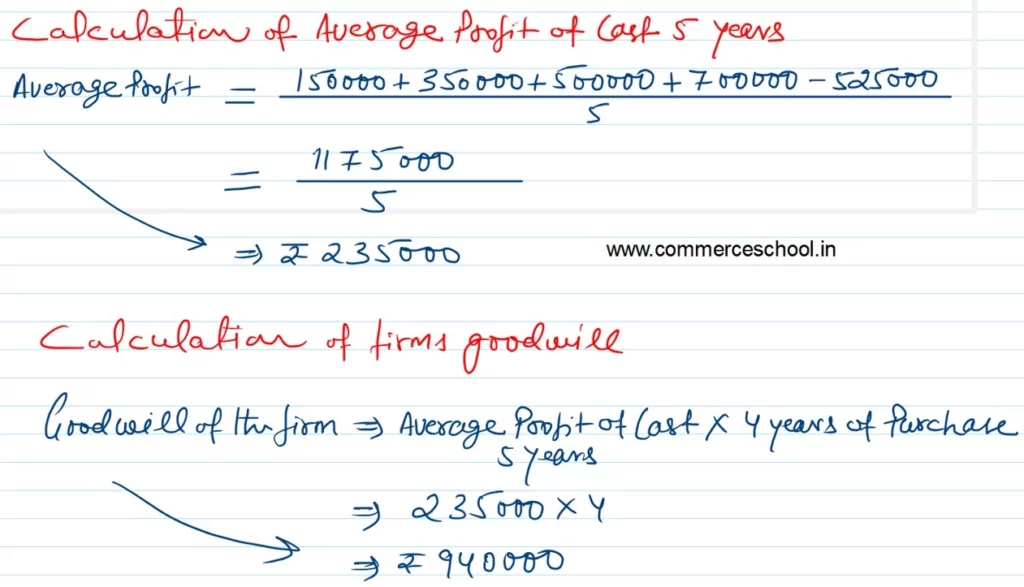 Calculation of Average Profit of Last 5 years
Average Profit = 150000 + 350000 + 500000 + 700000 - 525000
5
= 1175000
5
⇒ ₹ 235000
www.commerceschool.in
Calculation of firms goodwill
Goodwill of the firm ⇒ Average Profit of Last × 4 years of Purchase
5 years
⇒ 235000 × 4
⇒ ₹ 940000